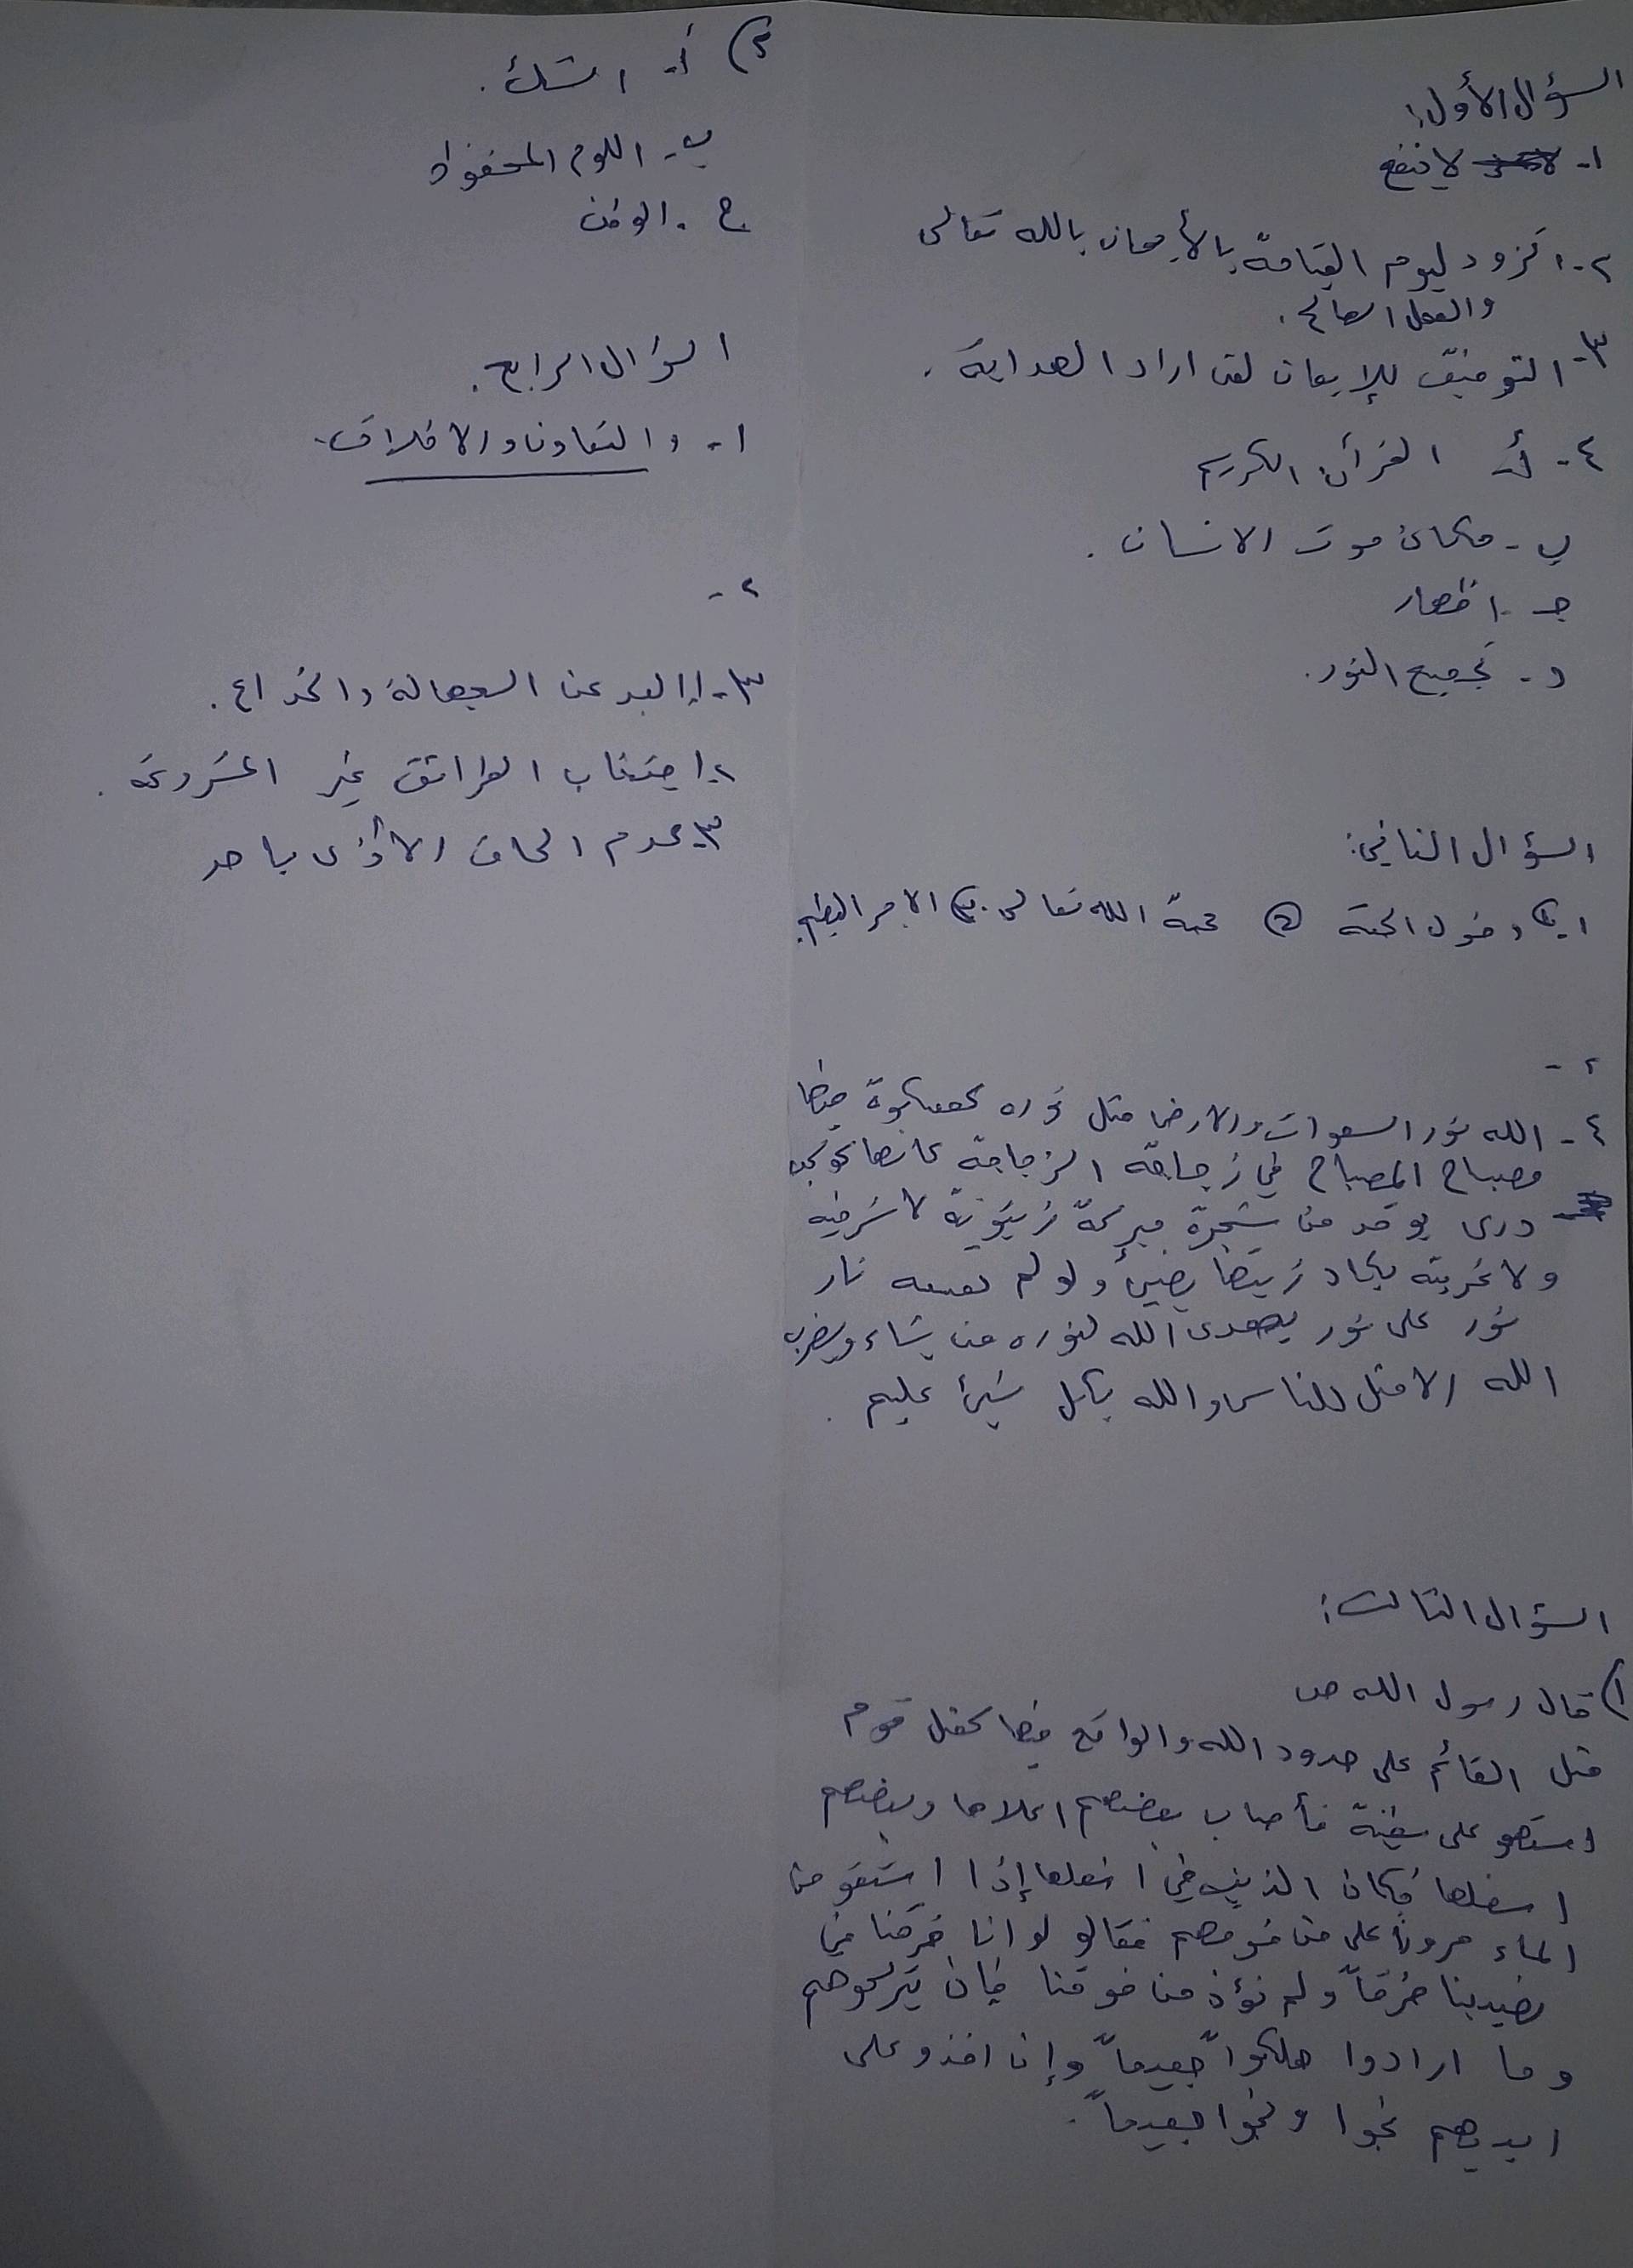 السؤال الأول:
١- لا ينفع
٢- اتزود ليوم القيامة بالأيمان بالله تعالى
والعمل الصالح.
٣- التوفيق للإيمان لمن اراد الهداية.
٤- أ- القرآن الكريم
ب- مكان موت الانسان.
جـ- اظهار
د- تجميع النور.
السؤال الثاني:
١- ① دخول الجنة ② محبة الله تعالى. ③ الاجر العظيم
٢-
٤- الله نور السموات والارض مثل نوره كمشكوة فيها
مصباح المصباح في زجاجة الزجاجة كانها كوكب
درى يوقد من شجرة مبركة زيتونة لا شرقيه
ولا غربيه يكاد زيتها يضيئ ولو لم تمسسه نار
نور على نور يهدى الله لنوره من يشاء ويضرب
الله الامثل للناس والله بكل شيئ عليم.
السؤال الثالث:
١) قال رسول الله ص
مثل القائم على حدود الله والواقع فيها كمثل قوم
استهمو على سفينة فأصاب بعضهم اعلاها وبعضهم
اسفلها فكان الذين في اسفلها إذا استقو من
الماء مروا على من فوقهم فقالو لو انا خرقنا في
نصيبنا خرقاً ولم نؤذ من فوقنا فإن يتركوهم
وما ارادوا هلكوا جميعاً وإن اخذو على
ايديهم نجوا ونجوا جميعاً.
٢) أ- الشك.
ب- اللوح المحفوظ
ج- الوثن
السؤال الرابع.
١- والتعاون والاخلاق.
٢-
٣- ١- البعد عن الجهالة والخداع.
٢- اجتناب الطرائق غير المشروعة.
٣- عدم الحاق الأذى باحد